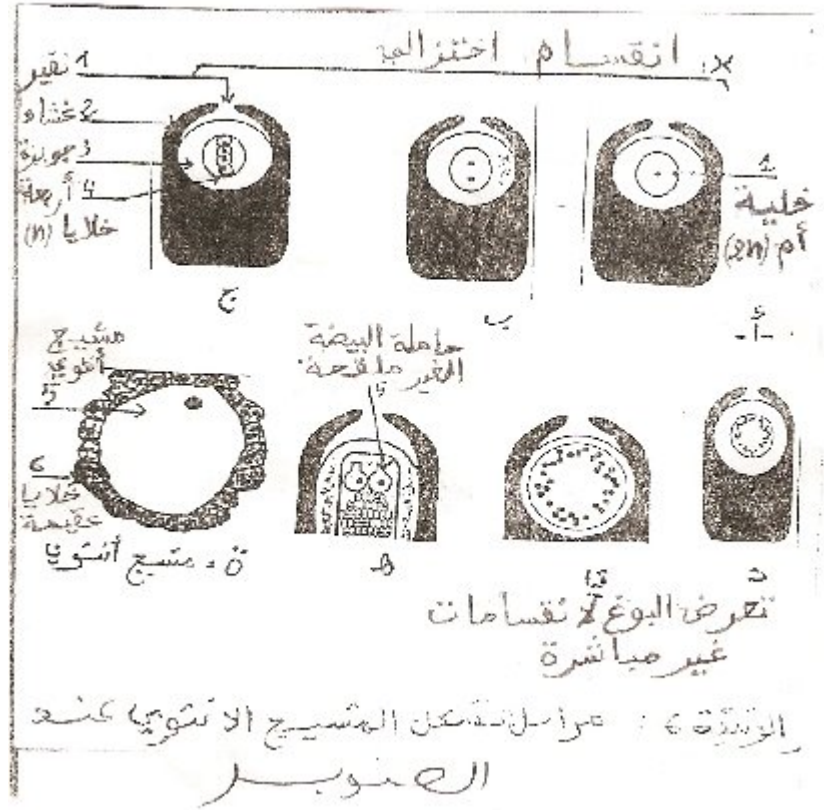 x: انقسام اختزالي
1 نقير
2 غشاء
3 جويزة
4 أربعة
خلايا (n)
1
خلية
أم (2n)
ج
ب
-أ-
مشيج
أنثوي
5
6
خلايا
عقيمة
حاملة البيضة
الغير ملقحة
ن = مشيج أنثوي
ه
د
تعرض البوغ لانقسامات
غير مباشرة
الوثيقة 6 : مراحل تشكل المشيج الانثوي عند
الصنوبر